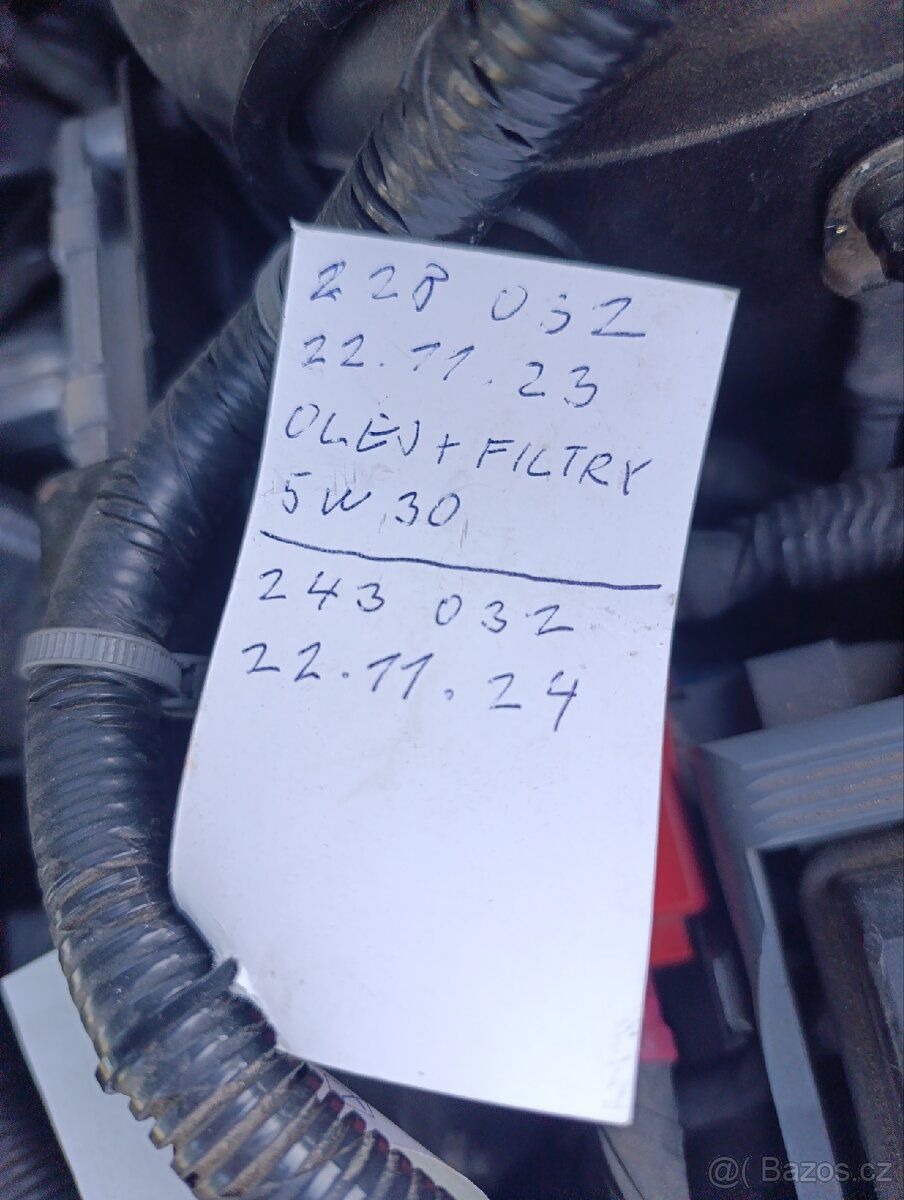 228 032
22.11.23
OLEJ + FILTRY
5W 30
243 032
22.11.24
@( Bazos.cz